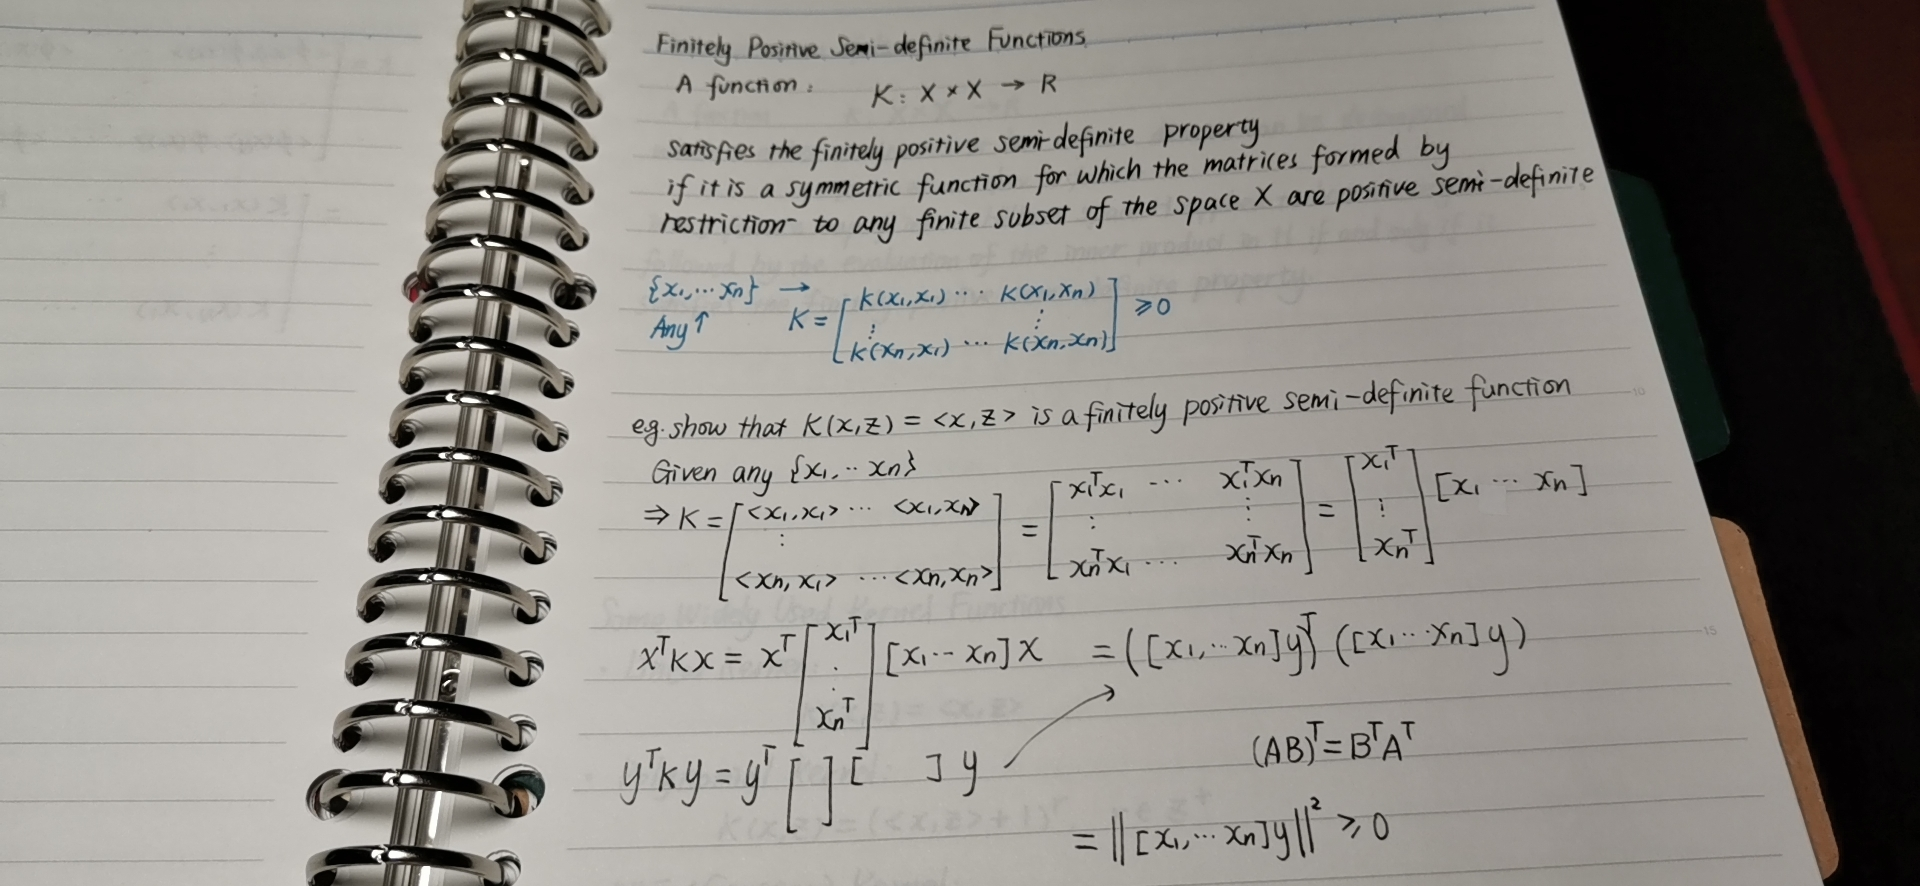 Finitely Positive Semi-definite Functions
A function: K: X × X → R
satisfies the finitely positive semi-definite property
if it is a symmetric function for which the matrices formed by
restriction to any finite subset of the space X are positive semi-definite
{x₁,⋯ xₙ} →
Any ↑ K = [K(x₁,x₁) ⋯ K(x₁,xₙ) ⋮ ⋮ K(xₙ,x₁) ⋯ K(xₙ,xₙ)] ⩾0
eg. show that K(x,z) = <x,z> is a finitely positive semi-definite function
Given any {x₁,‥ xₙ}
⇒ K = [<x₁,x₁> ⋯ <x₁,xₙ> ⋮ <xₙ,x₁> ⋯ <xₙ,xₙ>] = [x₁ᵀx₁ ⋯ x₁ᵀxₙ ⋮ ⋮ xₙᵀx₁ ⋯ xₙᵀxₙ] = [x₁ᵀ ⋮ xₙᵀ] [x₁ ⋯ xₙ]
xᵀKx = xᵀ [x₁ᵀ ⋮ xₙᵀ] [x₁ ‥ xₙ] x = ([x₁,⋯ xₙ]y)ᵀ ([x₁ ⋯ xₙ]y)
yᵀKy = yᵀ [ ] [ ] y
(AB)ᵀ = BᵀAᵀ
= ||[x₁,⋯ xₙ]y||² ⩾ 0